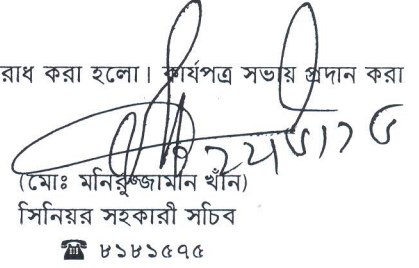 রাধ করা হলো। কার্যপত্র সভায় প্রদান করা
(মোঃ মনিরুজ্জামান খাঁন)
সিনিয়র সহকারী সচিব
☎ ৮১৮১৫৭৫